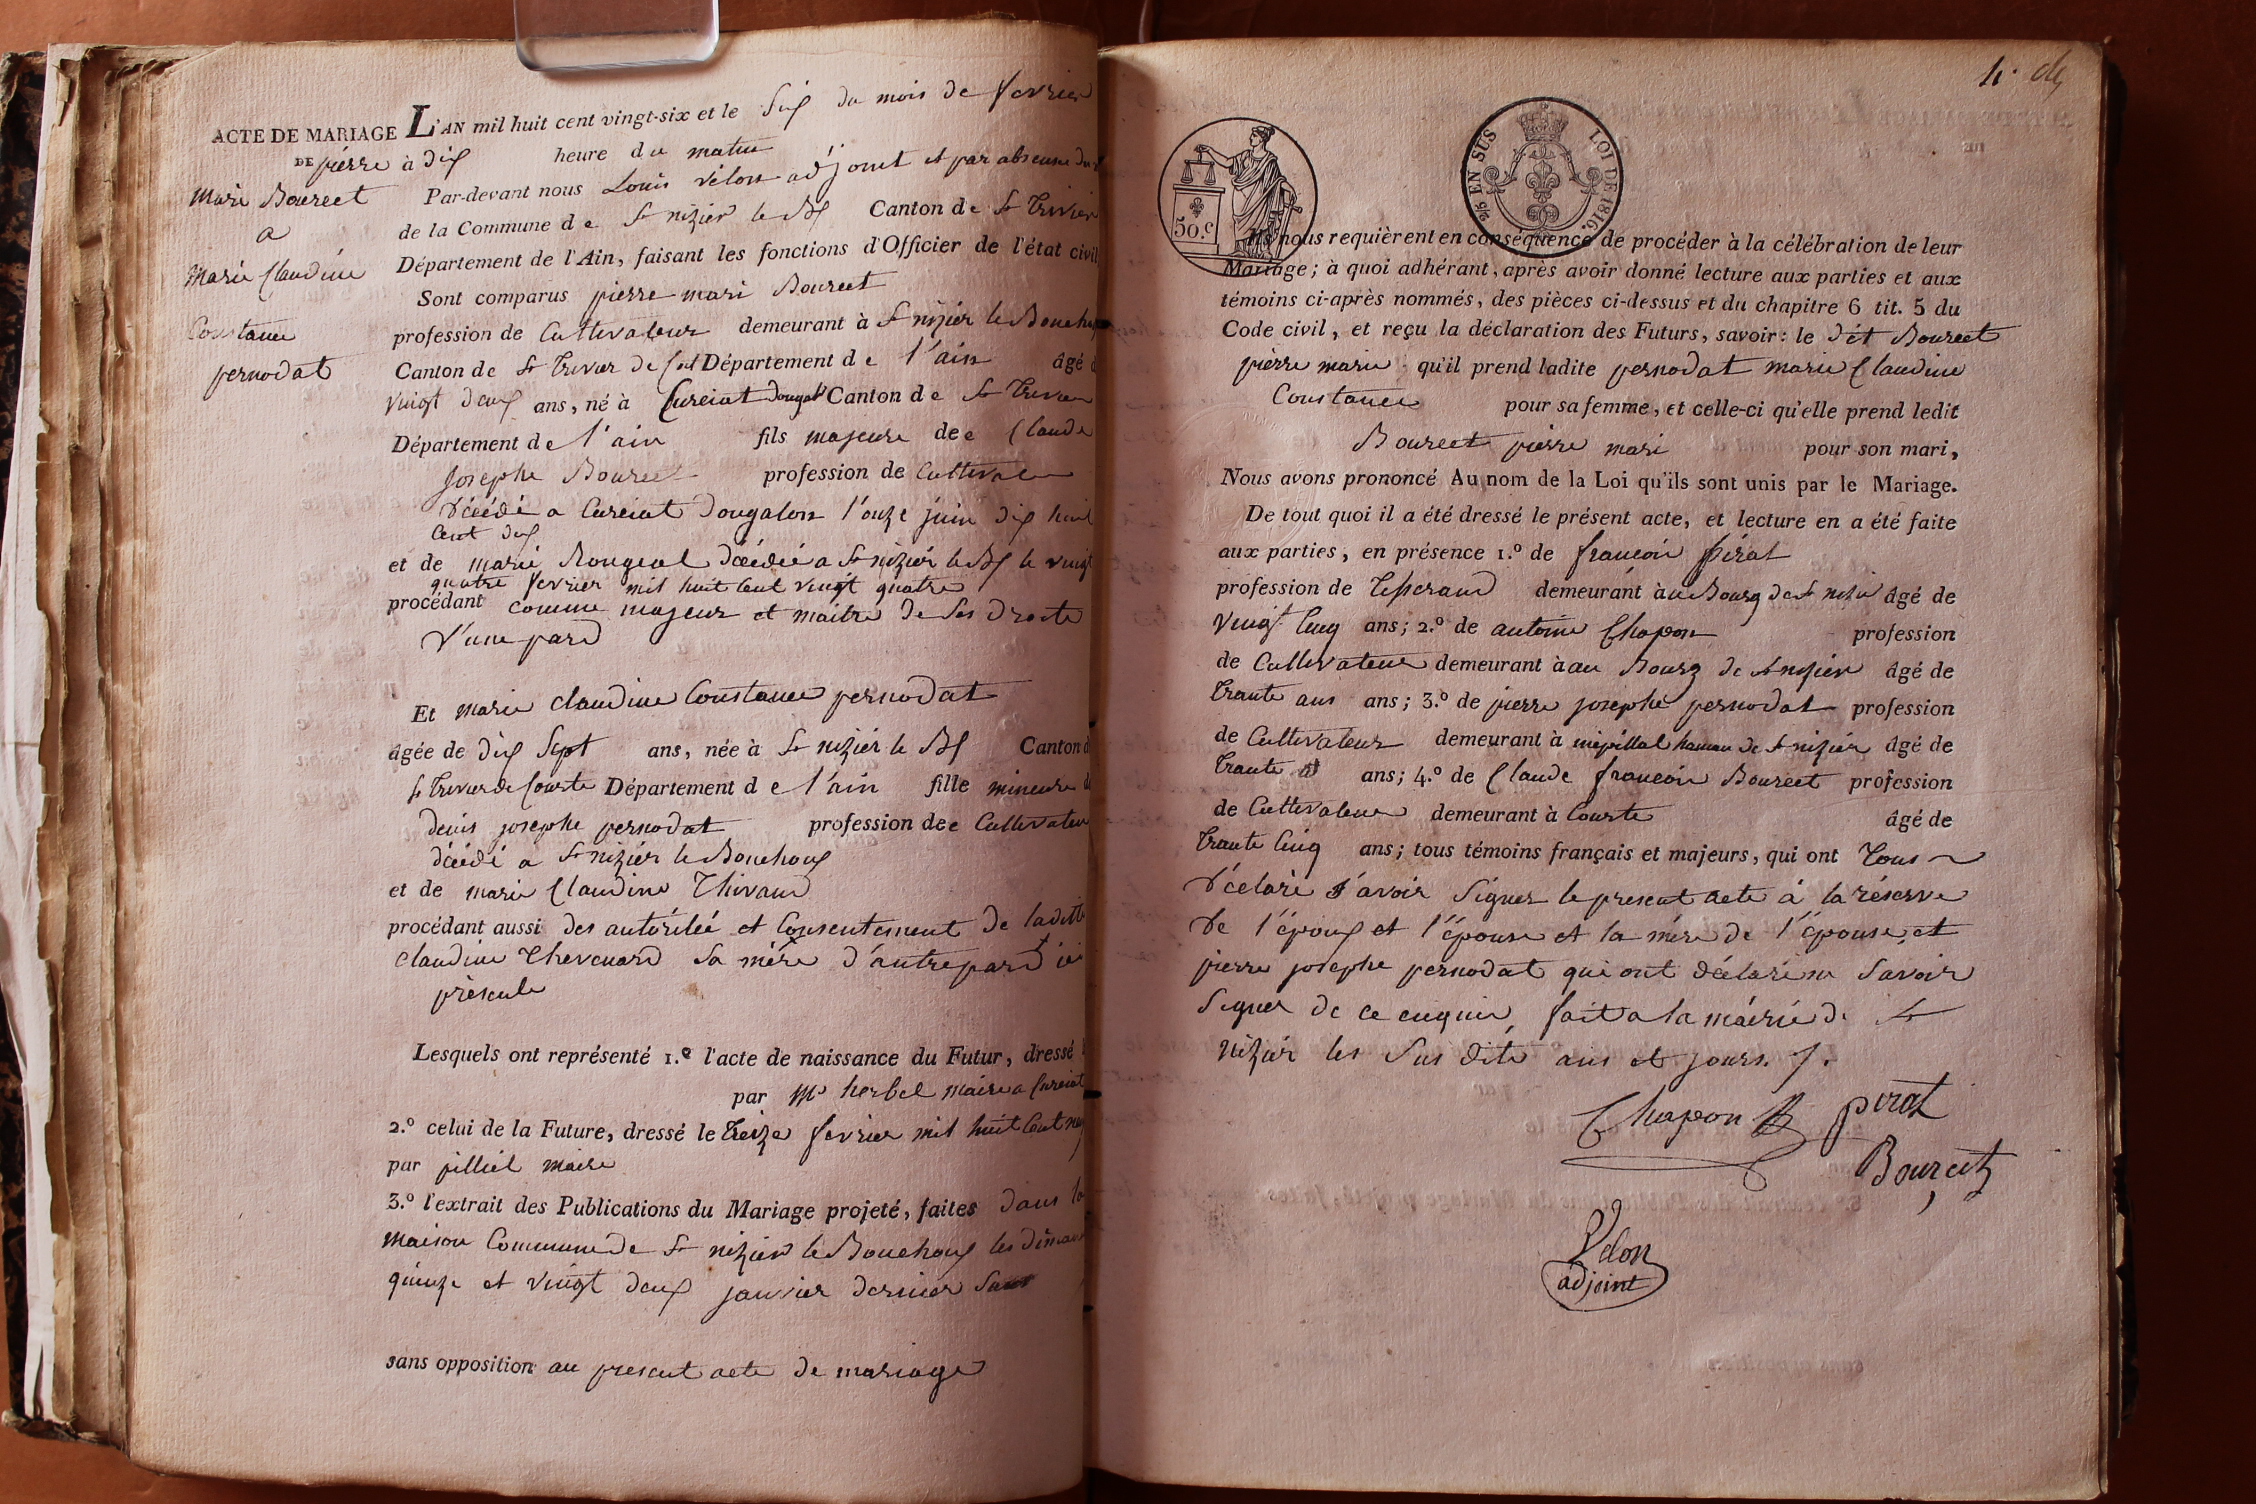 ACTE DE MARIAGE
DE pierre
Mari Bourcet
a
Marie Claudine
Constance
pernodat
L'AN mil huit cent vingt-six et le Six du mois de fevrier
à dix heure du matin
Par-devant nous Louis vélon adjoint et par absence du
de la Commune de St nizier le Bx Canton de St Trivier
Département de l'Ain, faisant les fonctions d'Officier de l'état civil
Sont comparus pierre mari Bourcet
profession de Cultivateur demeurant à St nizier le Bouchoux
Canton de St Trivier de Département de l'ain âgé
vingt deux ans, né à Cureiat dougal Canton de St Trivier
Département de l'ain fils majeure dee Claude
Josephe Bourcet profession de Cultivateur
décédé a Cureiat dougalon l'onze juin dix huit
Cent dix
et de marie Rongeat décédée a St nizier le Bx le vingt
quatre fevrier mil huit Cent vingt quatre
procédant comme majeur et maitre de Ses droits
d'une pard
Et marie claudine Constance pernodat
âgée de dix Sept ans, née à St nizier le Bx Canton
St Trivier de Courte Département de l'ain fille mineure
denis josephe pernodat profession dee Cultivateur
décédé a St nizier le Bouchoux
et de marie Claudine Thivand
procédant aussi des autoritéé et Consentement de laditte
Claudine Thevenard Sa mère d'autre pard ici
présente
Lesquels ont représenté 1.º l'acte de naissance du Futur, dressé
par Mr herbet maire a Cureiat
2.º celui de la Future, dressé le Treize fevrier mil huit Cent neuf
par pilliet maire
3.º l'extrait des Publications du Mariage projeté, faites dans la
maison Commune de St nizier le Bouchoux les dimanche
quinze et vingt deux janvier dernier Sans
sans opposition au present acte de mariage
50.c
25 EN SUS LOI DE 1816.
Ils nous requièrent en conséquence de procéder à la célébration de leur
Mariage; à quoi adhérant, après avoir donné lecture aux parties et aux
témoins ci-après nommés, des pièces ci-dessus et du chapitre 6 tit. 5 du
Code civil, et reçu la déclaration des Futurs, savoir: le dét Bourcet
pierre marie qu'il prend ladite pernodat marie Claudine
Constance pour sa femme, et celle-ci qu'elle prend ledit
Bourcet pierre mari pour son mari,
Nous avons prononcé Au nom de la Loi qu'ils sont unis par le Mariage.
De tout quoi il a été dressé le présent acte, et lecture en a été faite
aux parties, en présence 1.º de francoir pirat
profession de Tisserand demeurant à au Bourg de St nizir âgé de
vingt Cinq ans; 2.º de antoine Chapon profession
de Cultivateur demeurant à au Bourg de St nizier âgé de
Trante ans ans; 3.º de pierre josephe pernodat profession
de Cultivateur demeurant à mépillat hameau de St nizier âgé de
Trante ans; 4.º de Claude francoir Bourcet profession
de Cultivateur demeurant à Courte âgé de
Trante Cinq ans; tous témoins français et majeurs, qui ont Tous
déclaré s'avoir Signer le present acte à la réserve
de l'époux et l'épouse et la mère de l'épouse, et
pierre josephe pernodat qui ont déclaré ne Savoir
Signer de ce enquir, fait a la mairie de St
nizier les Sus dité ans et jours.
Chapon pirat
Bourcet
Velon
adjoint